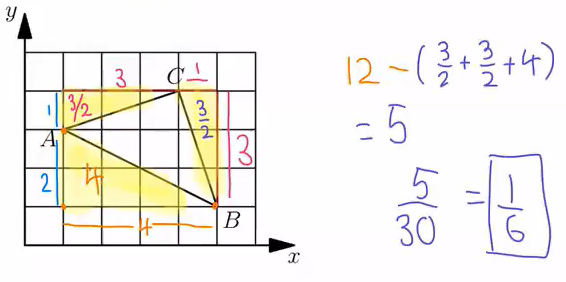 y
3 C 1
1 3/2 3/2
A 3
2 4
B
4
x
12 - (3/2 + 3/2 + 4)
= 5
5/30 = 1/6